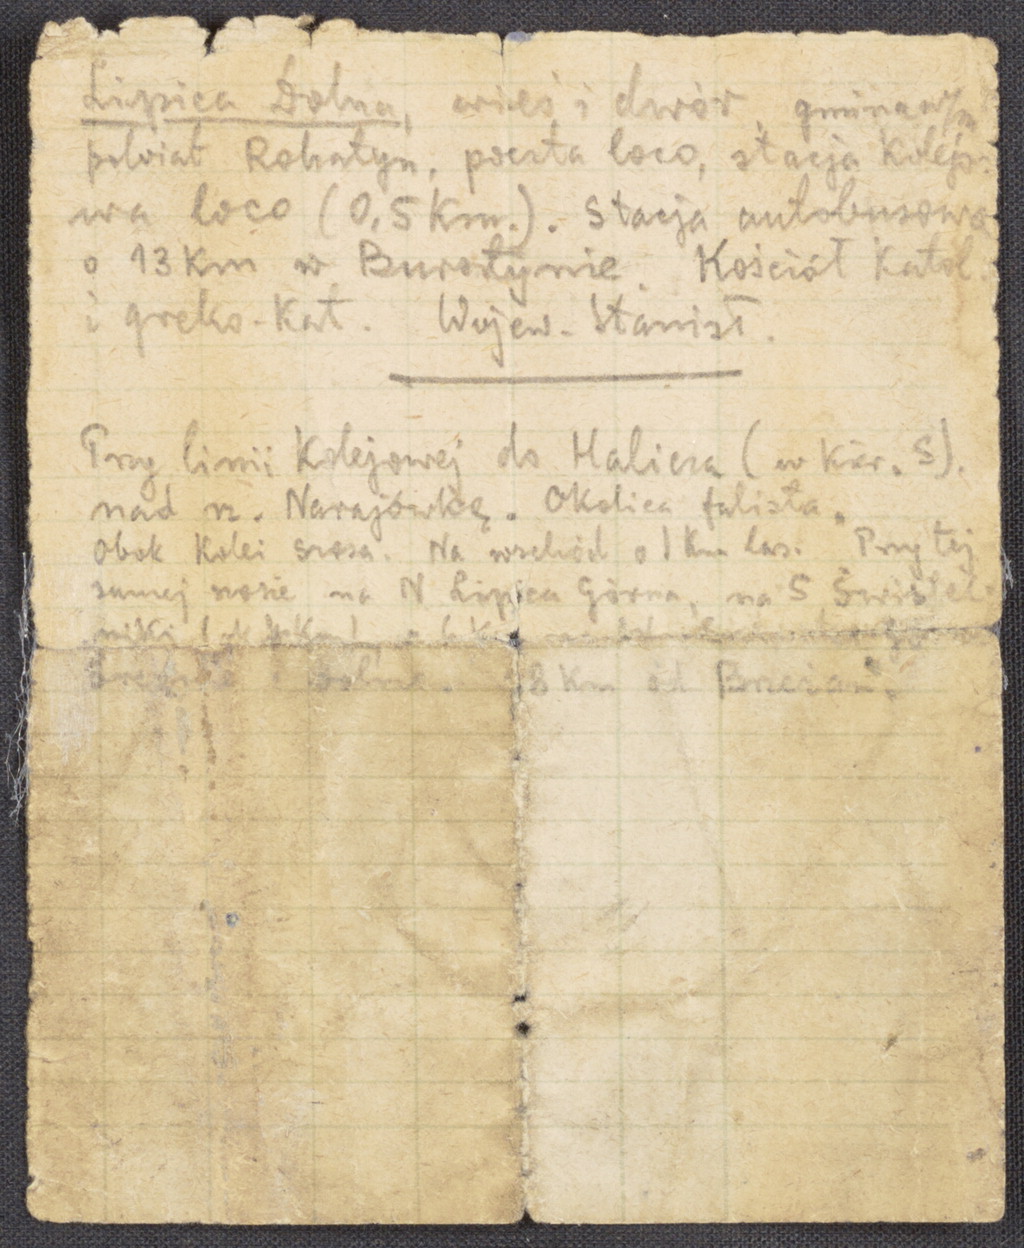 Lipica Dolna, wieś i dwór, gmina w/m
powiat Rohatyn, poczta loco, stacja kolejo-
wa loco (0,5 Km.). Stacja autobusowa
o 13 Km w Bursztynie. Kościół Katol.
i greko-Kat. Wojew. Stanisł.
Przy linii Kolejowej do Halicza (w kier. S).
nad rz. Narajówką. Okolica falista.
Obok Kolei szosa. Na wschód o 1 Km las. Przy tej
samej szosie na N Lipica Górna, na S Świstel-
niki
i Dolne. 8 Km od Brzeżan.